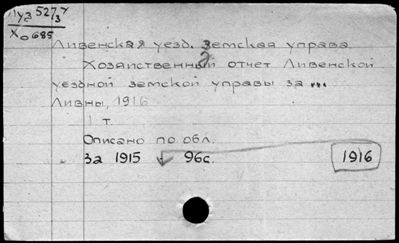 Луа 527/3
Хо685
Ливенская уезд. земская управа.
Хозяйственный отчет Ливенской
уездной земской управы за ...
Ливны, 1916
1 т.
Описано по обл.
за 1915 96с. 1916